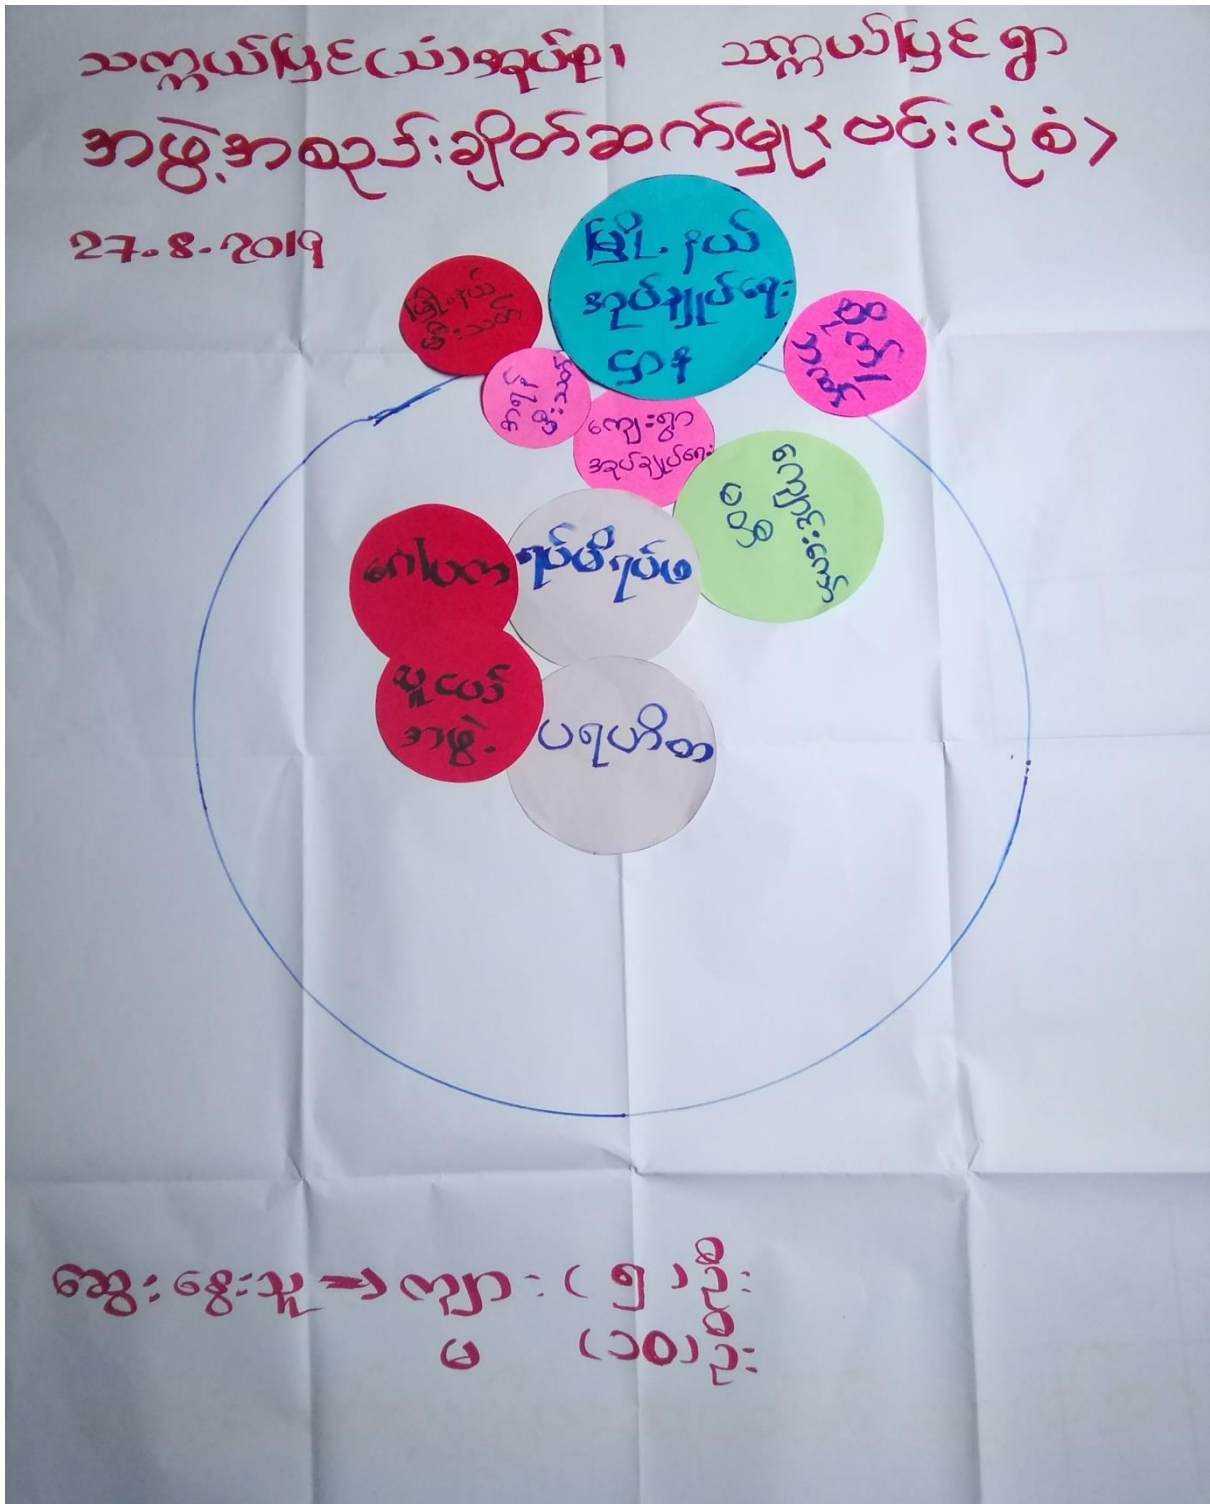 သက္ကယ်ပြင်(သံ)အုပ်စု၊ သက္ကယ်ပြင်ရွာ
အဖွဲ့အစည်းချိတ်ဆက်မှု<ဗင်းပုံစံ>
27.8.2019
မြို့နယ်
အုပ်ချုပ်ရေး
ဌာန
မြို့နယ်
မီးသတ်
အရန်
မီးသတ်
ကျေးရွာ
အုပ်ချုပ်ရေး
ဂေါပက
ရပ်မိရပ်ဖ
လူငယ်
အဖွဲ့
ပရဟိတ
ဆွေးနွေးသူ → ကျား (၅) ဦး
မ (၁၀) ဦး